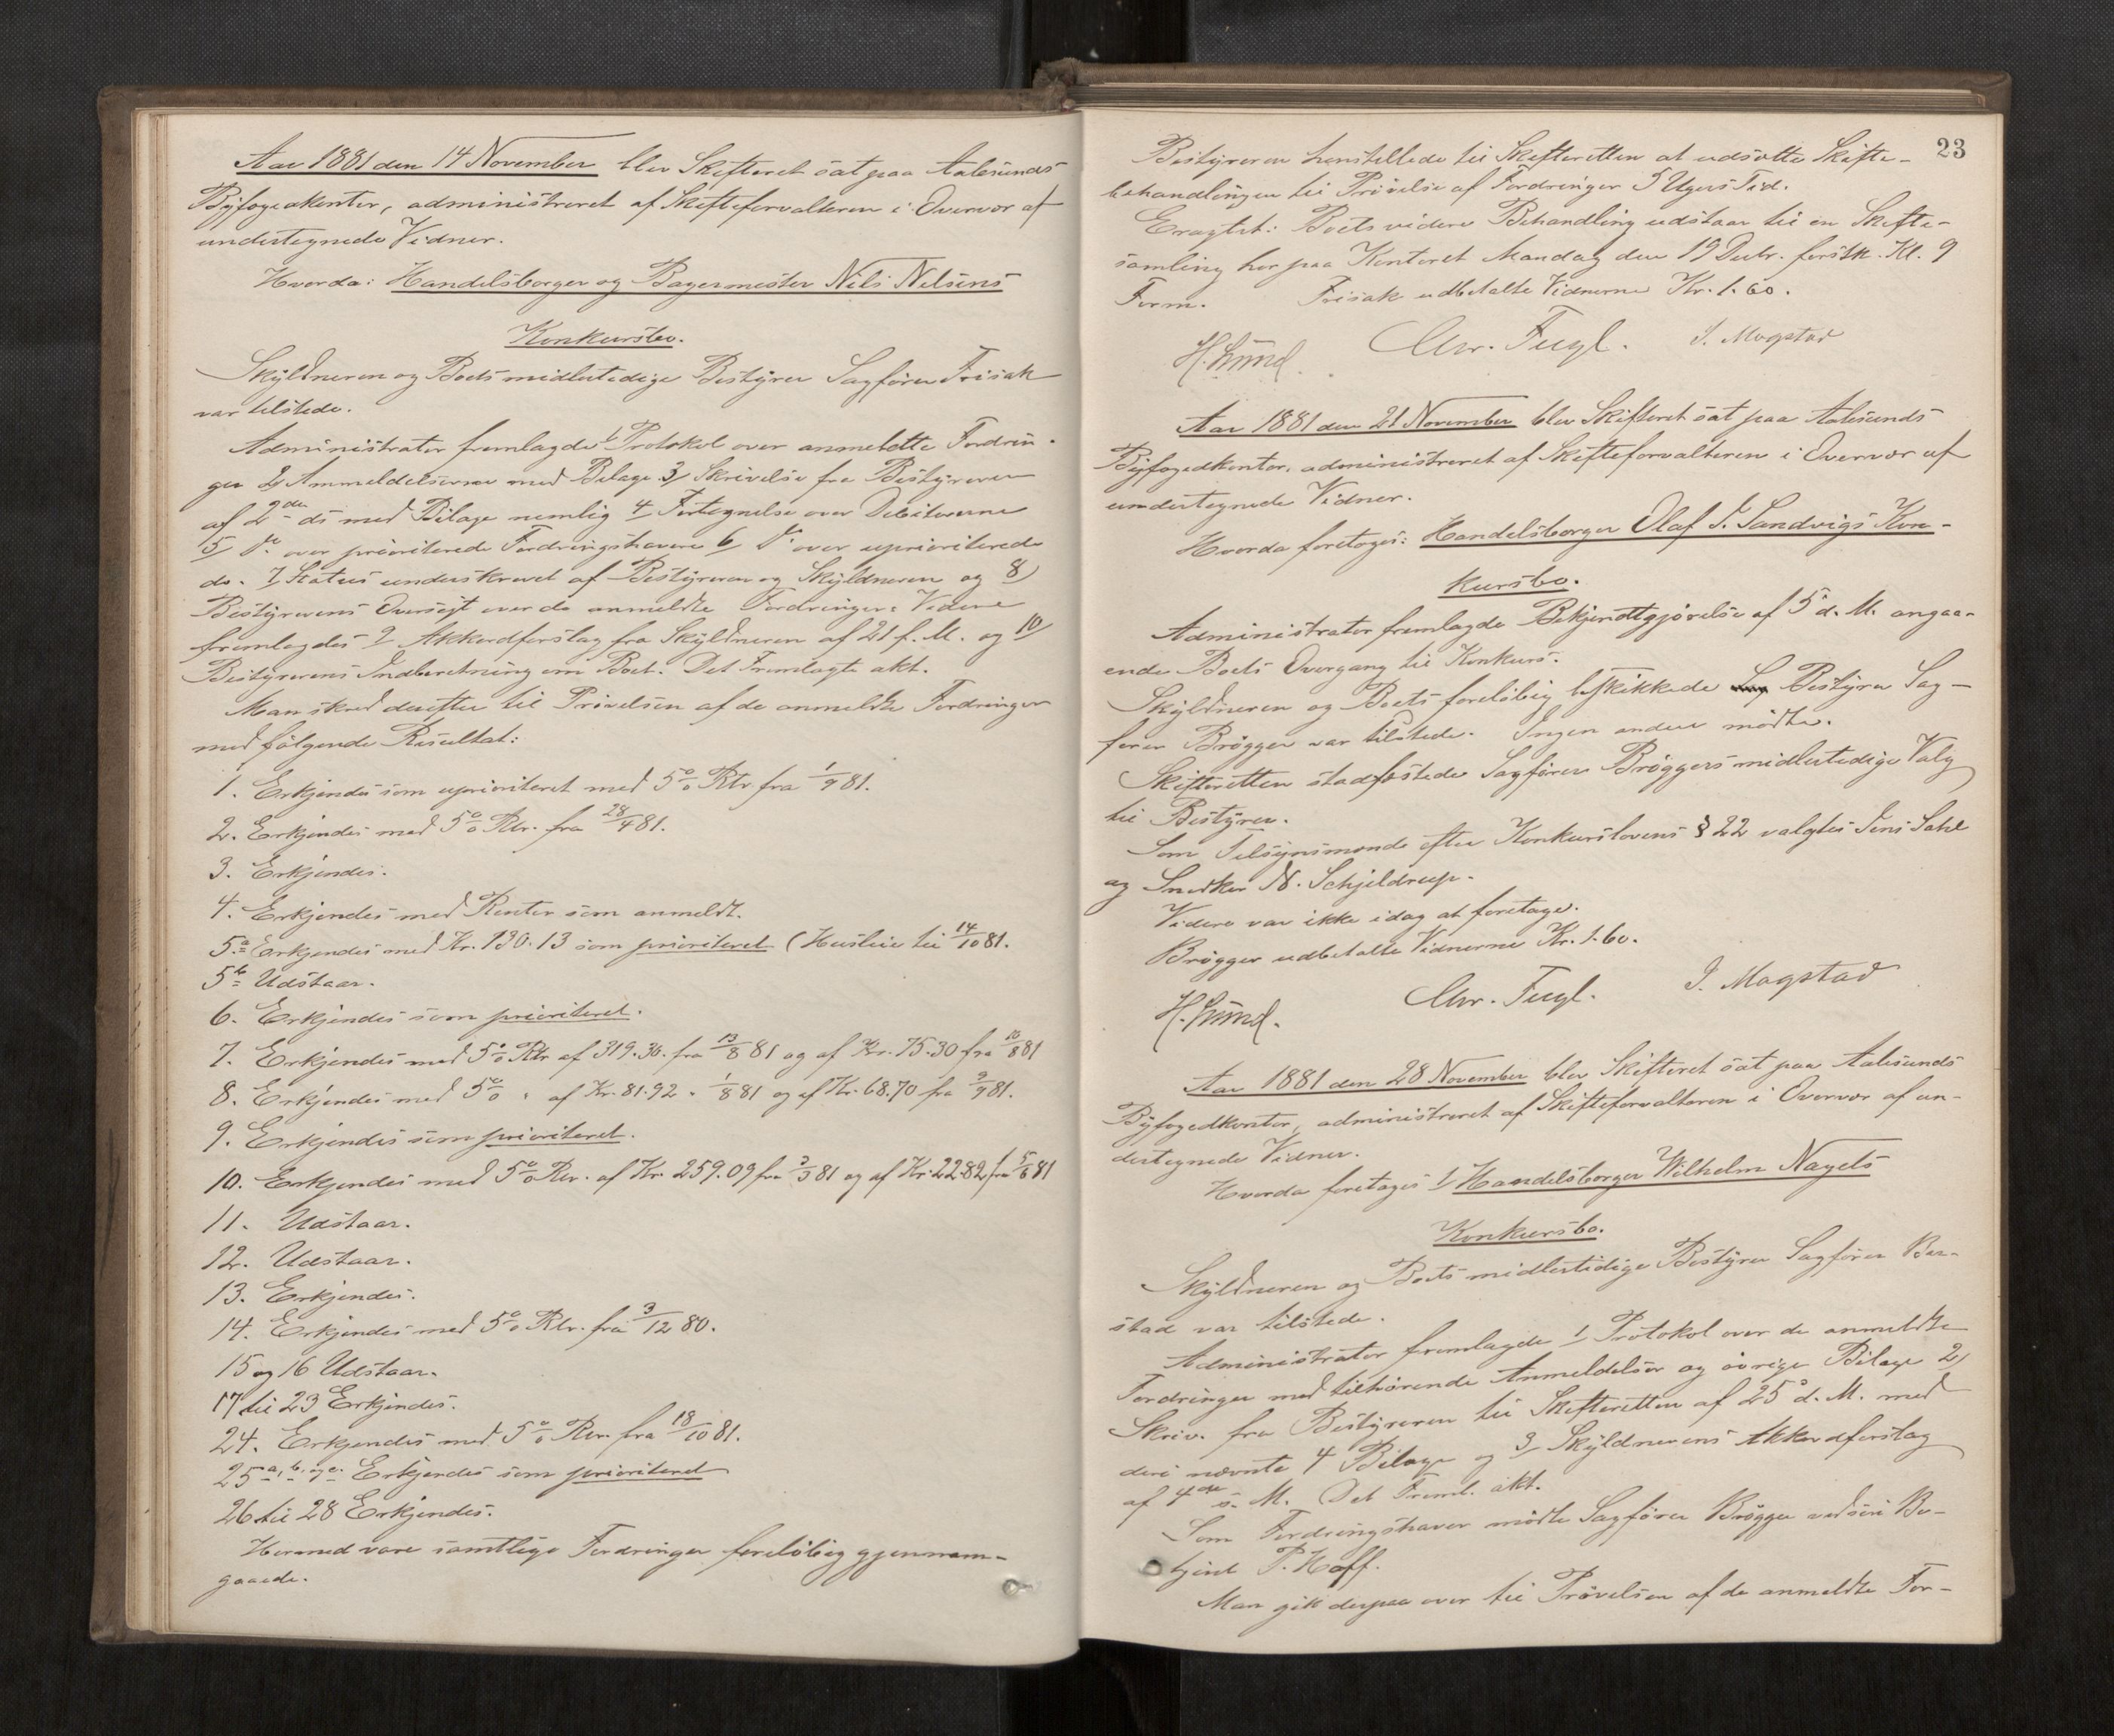 Aar 1881 den 14 November blev Skifteret sat paa Aalesunds
Byfogedkontor, administreret af Skifteforvalteren i Overvær af
undertegnede Vidner.
Hvorda: Handelsborger og Bagermester Nils Nilsens
Konkursbo.
Skyldneren og Boets midlertidige Bestyrer Sagfører Frisak
var tilstede.
Administrator fremlagde 1/ Protokol over anmeldte Fordrin-
ger 2/ Anmeldelserne med Bilage 3/ Skrivelse fra Bestyreren
af 2den ds med Bilage nemlig 4/ Fortegnelse over Debitorerne
5/ Do over prioriterede Fordringshavere 6/ Do over uprioriterede
do. 7/ Status underskrevet af Bestyreren og Skyldneren og 8/
Bestyrerens Oversigt over de anmeldte Fordringer. Videre
fremlagdes 9 Akkordforslag fra Skyldneren af 21 f. M. og 10/
Bestyrerens Indberetning om Boet. Det Fremlagte akt.
Man skred derefter til Prøvelsen af de anmeldte Fordringer
med følgende Resultat:
1. Erkjendes som uprioriteret med 5% Rtr fra 1/9 81.
2. Erkjendes med 5% Rtr. fra 28/4 81.
3. Erkjendes.
4. Erkjendes med Renter som anmeldt.
5.a Erkjendes med Kr. 130.13 som prioriteret (Husleie til 14/10 81.
5b Udstaar.
6. Erkjendes som prioriteret.
7. Erkjendes med 5% Rtr af 319.36. fra 13/8 81 og af Kr. 75.30 fra 10/8 81
8. Erkjendes med 5% " af Kr. 81.92 " 1/8 81 og af Kr. 68.70 fra 9/9 81.
9. Erkjendes som prioriteret.
10. Erkjendes med 5% Rtr. af Kr. 259.09 fra 3/3 81 og af Kr. 22.82 fra 5/6 81
11. Udstaar.
12. Udstaar.
13. Erkjendes.
14. Erkjendes med 5% Rtr. fra 3/12 80.
15 og 16 Udstaar.
17 til 23 Erkjendes.
24. Erkjendes med 5% Rtr. fra 18/10 81.
25 a, b, og c. Erkjendes som prioriteret
26 til 28 Erkjendes.
Hermed vare samtlige Fordringer foreløbig gjennem-
gaaede.
23
Bestyreren henstillede til Skifteretten at udsætte Skifte-
behandlingen til Prøvelse af Fordringer 5 Ugers Tid.
Eragtet: Boets videre Behandling udstaar til en Skifte-
samling her paa Kontoret Mandag den 19 Decbr. førstk. Kl. 9
Form. Frisak udbetalte Vidnerne Kr. 1.60.
H. Lund. Chr. Fugl. I. Magstad
Aar 1881 den 21 November blev Skifteret sat paa Aalesunds
Byfogedkontor, administreret af Skifteforvalteren i Overvær af
undertegnede Vidner.
Hvorda foretoges: Handelsborger Olaf I. Sandvigs Kon-
kursbo.
Administrator fremlagde Bekjendtgjørelse af 5 d. M. angaa-
ende Boets Overgang til Konkurs.
Skyldneren og Boets foreløbig beskikkede Bestyrer Sag-
fører Brøgger var tilstede. Ingen andre mødte.
Skifteretten stadfæstede Sagfører Brøggers midlertidige Valg
til Bestyrer.
Som Tilsynsmænd efter Konkurslovens § 22 valgtes Jens Sahl
og Snedker N. Schjeldrup.
Videre var ikke idag at foretage.
Brøgger udbetalte Vidnerne Kr. 1.60.
H. Lund. Chr. Fugl. I. Magstad
Aar 1881 den 28 November blev Skifteret sat paa Aalesunds
Byfogedkontor, administreret af Skifteforvalteren i Overvær af un-
dertegnede Vidner.
Hvorda foretoges 1/ Handelsborger Wilhelm Nagels
Konkursbo.
Skyldneren og Boets midlertidige Bestyrer Sagfører Ber-
stad var tilstede.
Administrator fremlagde 1/ Protokol over de anmeldte
Fordringer med tilhørende Anmeldelser og øvrige Bilage 2/
Skriv. fra Bestyreren til Skifteretten af 25 d. M. med
deri nævnte 4 Bilage og 3/ Skyldnerens Akkordforslag
af 4de s. M. Det Freml. akt.
Som Fordringshaver mødte Sagfører Brøgger ved sin Be-
tjent P. Hoff.
Man gik derpaa over til Prøvelsen af de anmeldte For-